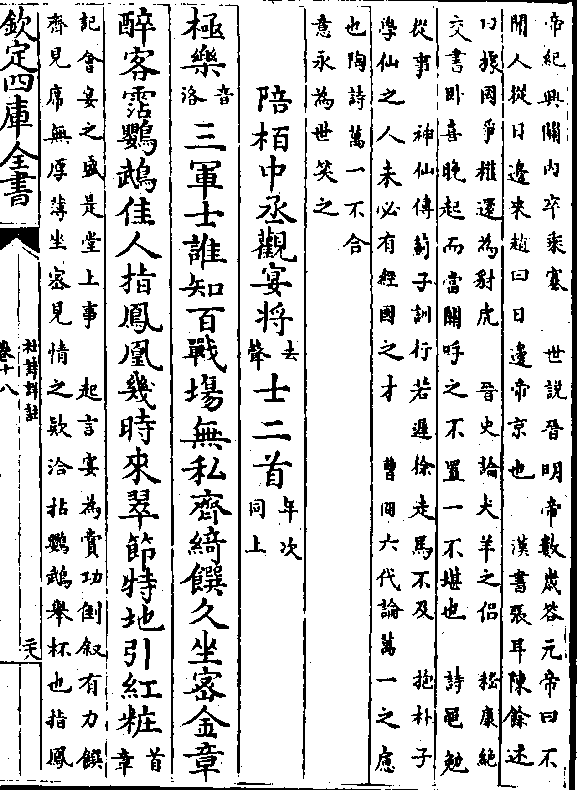 帝紀興關内卒乗塞　世説晉明帝數歳答元帝曰不
聞人從日邊來趙曰日邊帝京也　漢書張耳陳餘述
曰據國爭權還為豺虎　晉史論犬羊之侶　嵇康絶
交書卧喜晚起而當關呼之不置一不堪也　詩黽勉
從事　神仙傳薊子訓行若遲徐走馬不及　抱朴子
學仙之人未必有經國之才　曹冏六代論萬一之慮
也陶詩萬一不合
意永為世笑之
陪栢中丞觀宴将去聲士二首年次同上
極樂音洛三軍士誰知百戰場無私齊綺饌久坐宻金章
醉客霑鸚鵡佳人指鳳凰幾時來翠節特地引紅粧首章
記會宴之盛是堂上事　起言宴為賞功倒叙有力饌
齊見席無厚薄坐宻見情之欵洽拈鸚鵡舉杯也指鳳
欽定四庫全書
杜詩詳註
卷十八